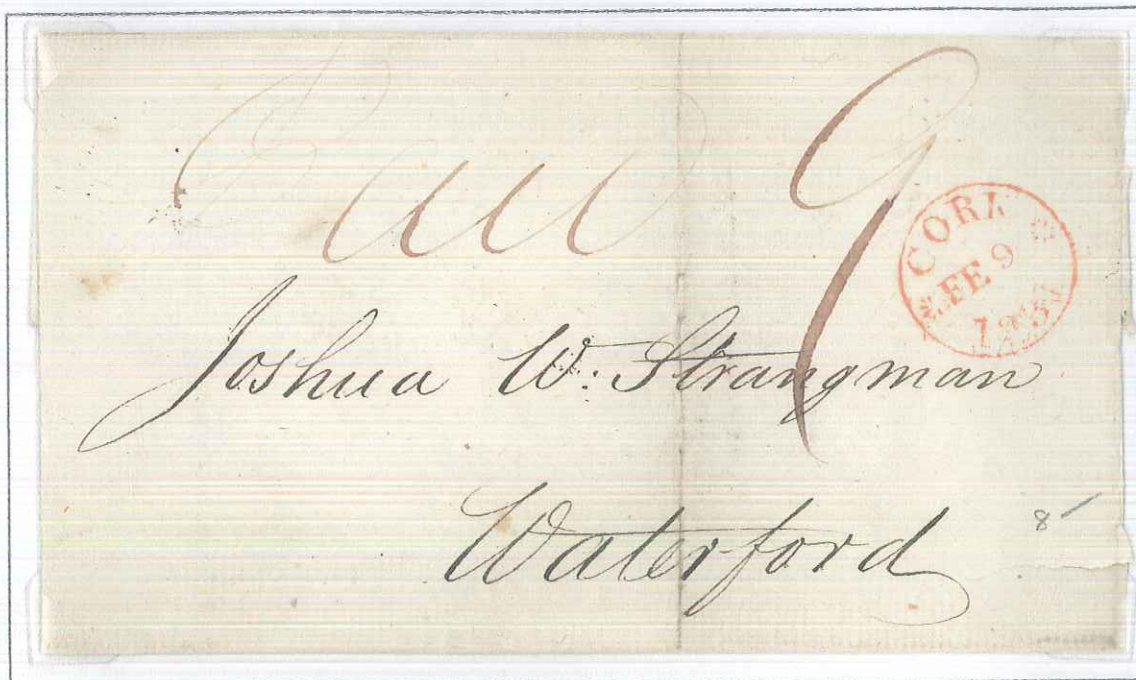 Paid 9
CORK
FE 9
183
Joshua W. Strangman
Waterford
8/